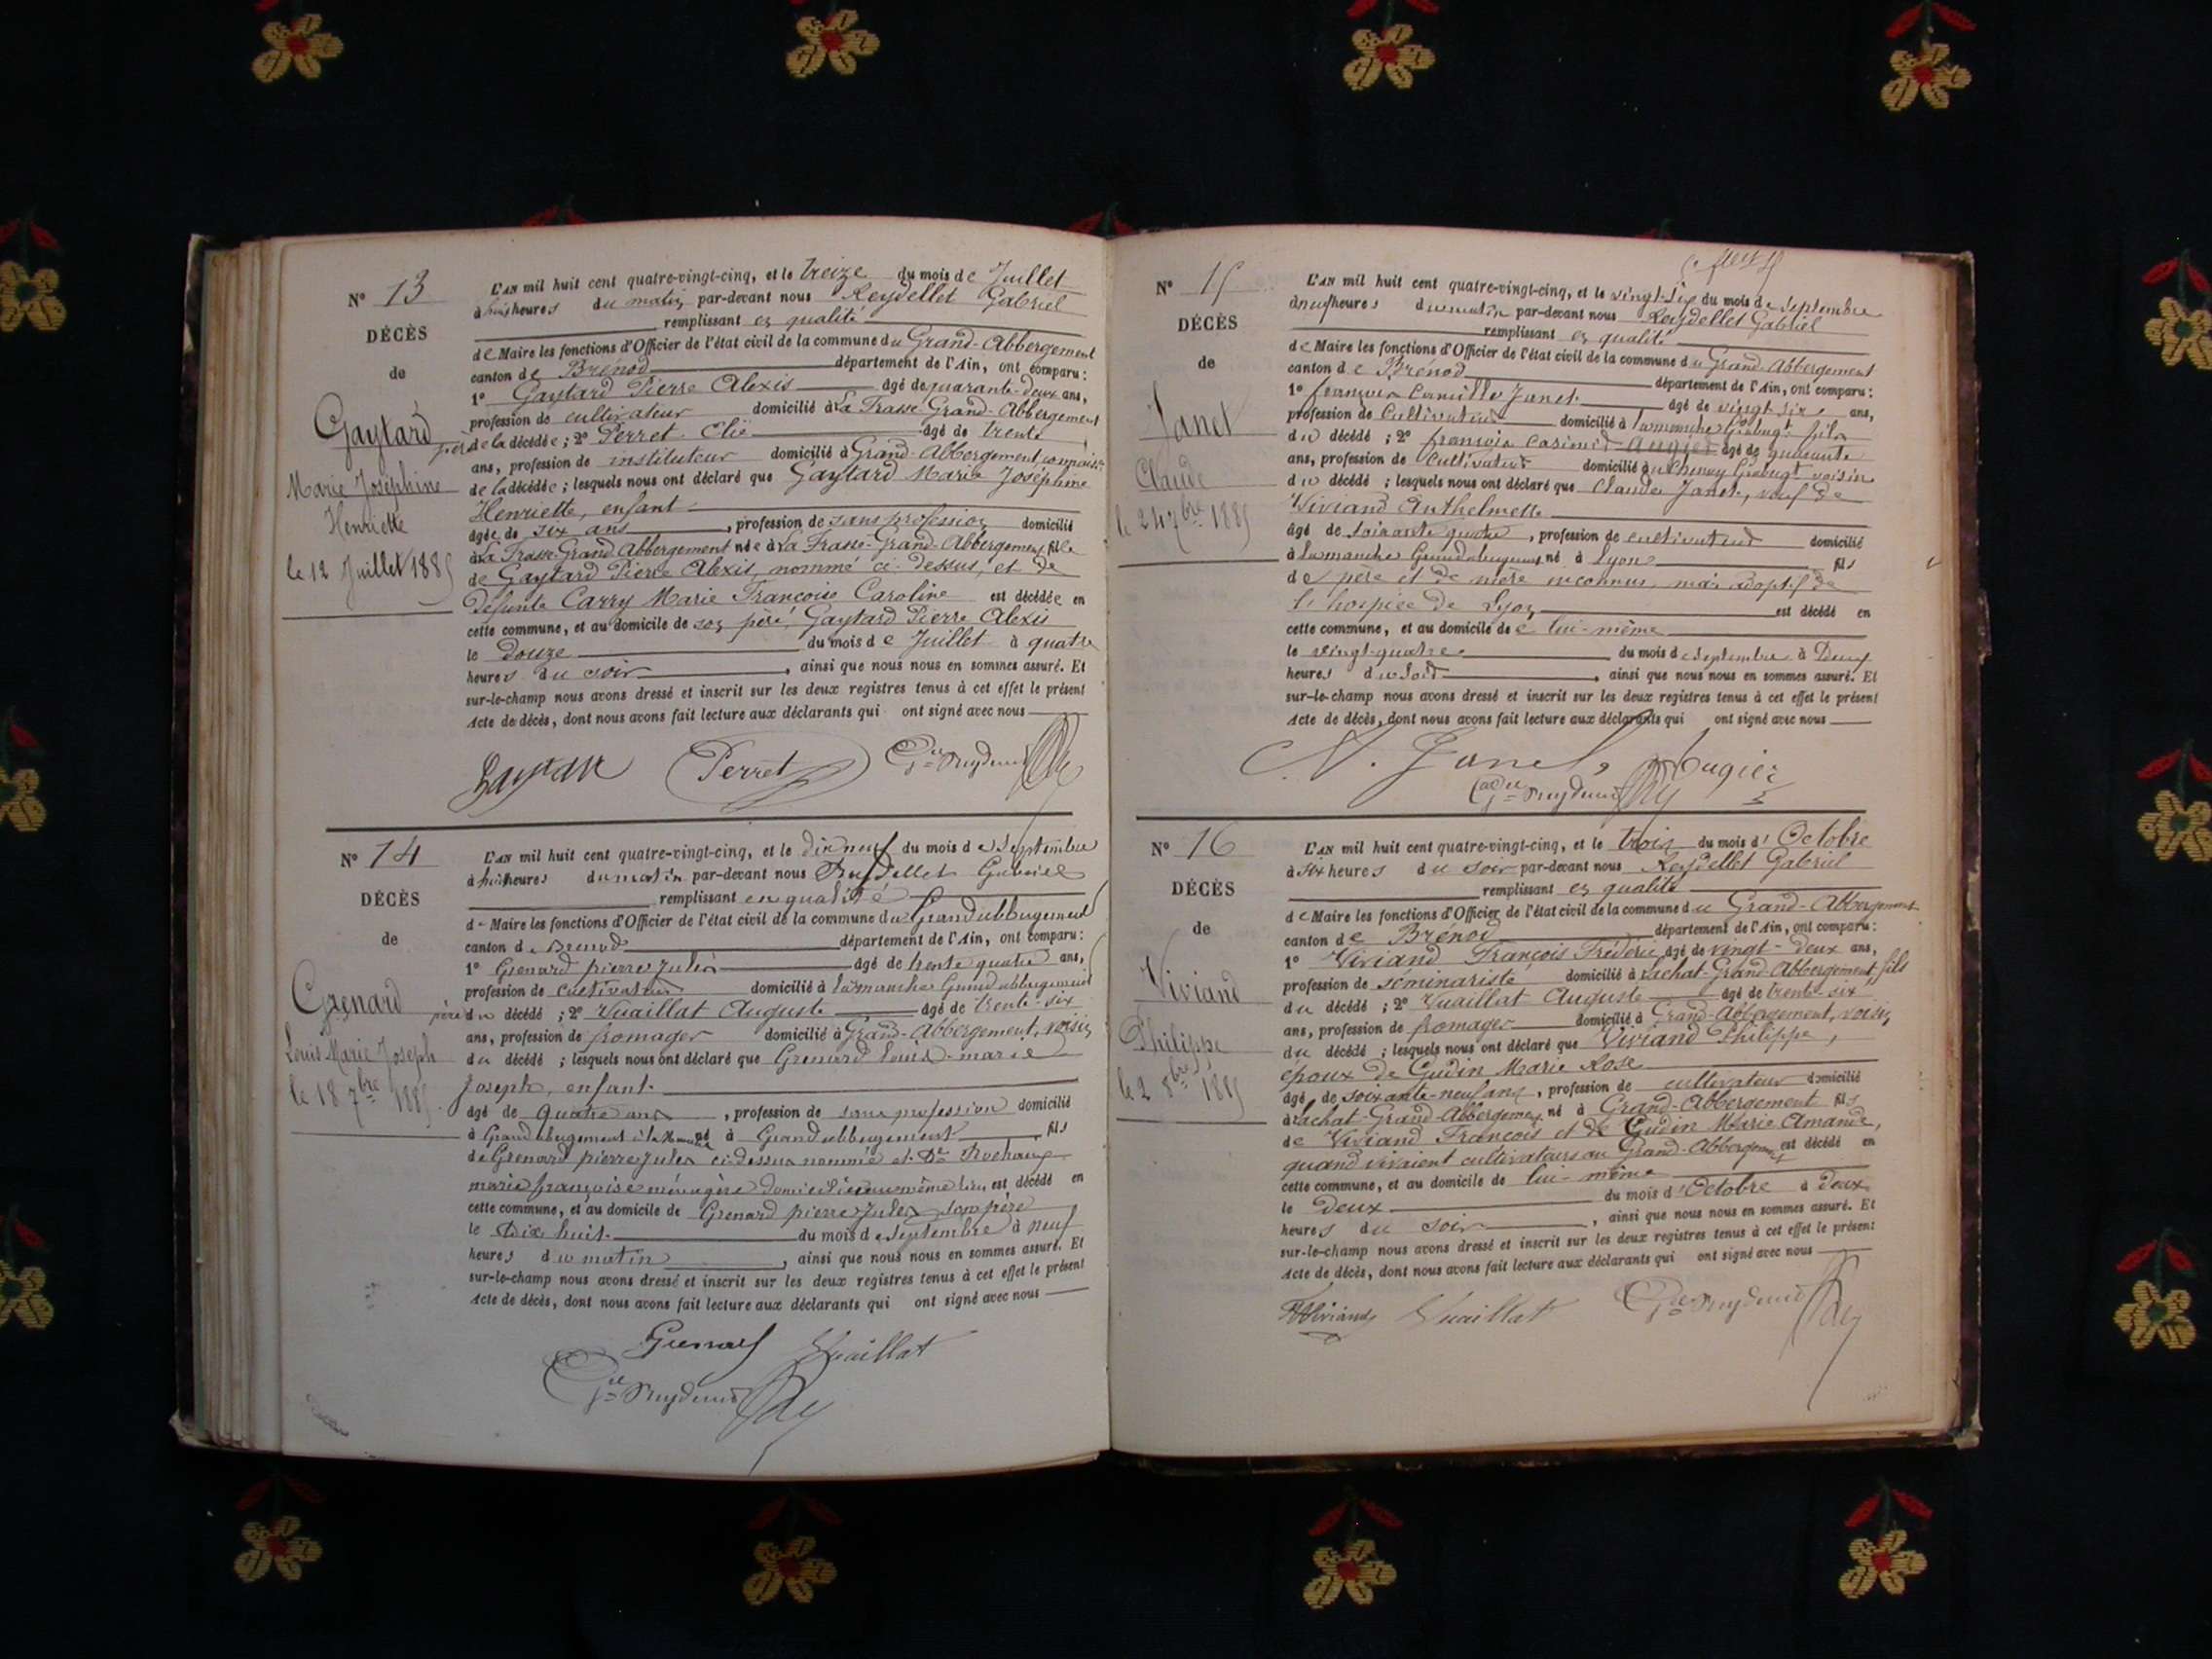 N° 13
DÉCÈS
de
Gaytard
Marie Joséphine
Henriette
le 12 Juillet 1885
L'AN mil huit cent quatre-vingt-cinq, et le treize du mois de Juillet
à huit heures du matin par-devant nous Reydellet Gabriel
remplissant en qualité
de Maire les fonctions d'Officier de l'état civil de la commune du Grand-Abbergement
canton de Brénod département de l'Ain, ont comparu :
1° Gaytard Pierre Alexis âgé de quarante-deux ans,
profession de cultivateur domicilié à La Frasse Grand-Abbergement
père de la décédée ; 2° Perret Elie âgé de trente
ans, profession de instituteur domicilié à Grand-Abbergement,
de la décédée ; lesquels nous ont déclaré que Gaytard Marie Joséphine
Henriette, enfant
âgée de six ans, profession de sans profession domicilié
à La Frasse-Grand Abbergement née à La Frasse-Grand-Abbergement, fille
de Gaytard Pierre Alexis, nommé ci-dessus, et de
défunte Carry Marie Françoise Caroline est décédée en
cette commune, et au domicile de son père, Gaytard Pierre Alexis
le douze du mois de Juillet à quatre
heures du soir, ainsi que nous nous en sommes assuré. Et
sur-le-champ nous avons dressé et inscrit sur les deux registres tenus à cet effet le présent
Acte de décès, dont nous avons fait lecture aux déclarants qui ont signé avec nous
Gaytard Perret
N° 14
DÉCÈS
de
Grenard
Louis Marie Joseph
le 18 7bre 1885.
L'AN mil huit cent quatre-vingt-cinq, et le dix neuf du mois de Septembre
à huit heures du matin par-devant nous Reydellet Gabriel
remplissant en qualité
de Maire les fonctions d'Officier de l'état civil de la commune du Grand abbergement
canton de Brénod département de l'Ain, ont comparu :
1° Grenard pierre Jules âgé de trente quatre ans,
profession de cultivateur domicilié à Lamanche Grand abbergement
père du décédé ; 2° Vuaillat Auguste âgé de trente-six
ans, profession de fromager domicilié à Grand-Abbergement, voisin
du décédé ; lesquels nous ont déclaré que Grenard Louis-marie
Joseph, enfant.
âgé de quatre ans, profession de sans profession domicilié
à Grand abbergement né à Grand abbergement, fils
de Grenard pierre Jules ci-dessus nommé et de
marie françoise ménagère domiciliée au même lieu est décédé en
cette commune, et au domicile de Grenard pierre Jules son père
le Dix huit. du mois de Septembre à neuf
heures du matin, ainsi que nous nous en sommes assuré. Et
sur-le-champ nous avons dressé et inscrit sur les deux registres tenus à cet effet le présent
Acte de décès, dont nous avons fait lecture aux déclarants qui ont signé avec nous
Grenard Vuaillat
N° 15
DÉCÈS
de
Janet
Claude
le 24 7bre 1885
L'AN mil huit cent quatre-vingt-cinq, et le vingt-six du mois de Septembre
à neuf heures du matin par-devant nous Reydellet Gabriel
remplissant en qualité
de Maire les fonctions d'Officier de l'état civil de la commune du Grand-Abbergement
canton de Brénod département de l'Ain, ont comparu :
1° françois Camille Janet âgé de vingt six ans,
profession de Cultivateur domicilié à Lamanche fils
du décédé ; 2° françois Casimir Augier âgé de quarante
ans, profession de Cultivateur domicilié à voisin
du décédé ; lesquels nous ont déclaré que Claude Janet, veuf de
Viviand Anthelmette
âgé de soixante quatre, profession de cultivateur domicilié
à Lamanche Grand abbergement né à Lyon fils
de père et de mère inconnus, mais adoptif de
l'hospice de Lyon est décédé en
cette commune, et au domicile de lui-même
le vingt-quatre du mois de Septembre à Deux
heures du Soir, ainsi que nous nous en sommes assuré. Et
sur-le-champ nous avons dressé et inscrit sur les deux registres tenus à cet effet le présent
Acte de décès, dont nous avons fait lecture aux déclarants qui ont signé avec nous
Janet Augier
N° 16
DÉCÈS
de
Viviand
Philippe
le 2 8bre 1885
L'AN mil huit cent quatre-vingt-cinq, et le trois du mois d'Octobre
à six heures du soir par-devant nous Reydellet Gabriel
remplissant en qualité
de Maire les fonctions d'Officier de l'état civil de la commune du Grand-Abbergement
canton de Brénod département de l'Ain, ont comparu :
1° Viviand François Frédéric âgé de vingt-deux ans,
profession de séminariste domicilié à Lachat-Grand-Abbergement, fils
du décédé ; 2° Vuaillat Auguste âgé de trente-six
ans, profession de fromager domicilié à Grand-Abbergement, voisin
du décédé ; lesquels nous ont déclaré que Viviand Philippe,
époux de Gudin Marie Rose
âgé de soixante-neuf ans, profession de cultivateur domicilié
à Lachat-Grand-Abbergement né à Grand-Abbergement fils
de Viviand François et de Gudin Marie Amande,
quand vivaient cultivateurs au Grand-Abbergement est décédé en
cette commune, et au domicile de lui-même
le deux du mois d'Octobre à deux
heures du soir, ainsi que nous nous en sommes assuré. Et
sur-le-champ nous avons dressé et inscrit sur les deux registres tenus à cet effet le présent
Acte de décès, dont nous avons fait lecture aux déclarants qui ont signé avec nous
Viviand Vuaillat